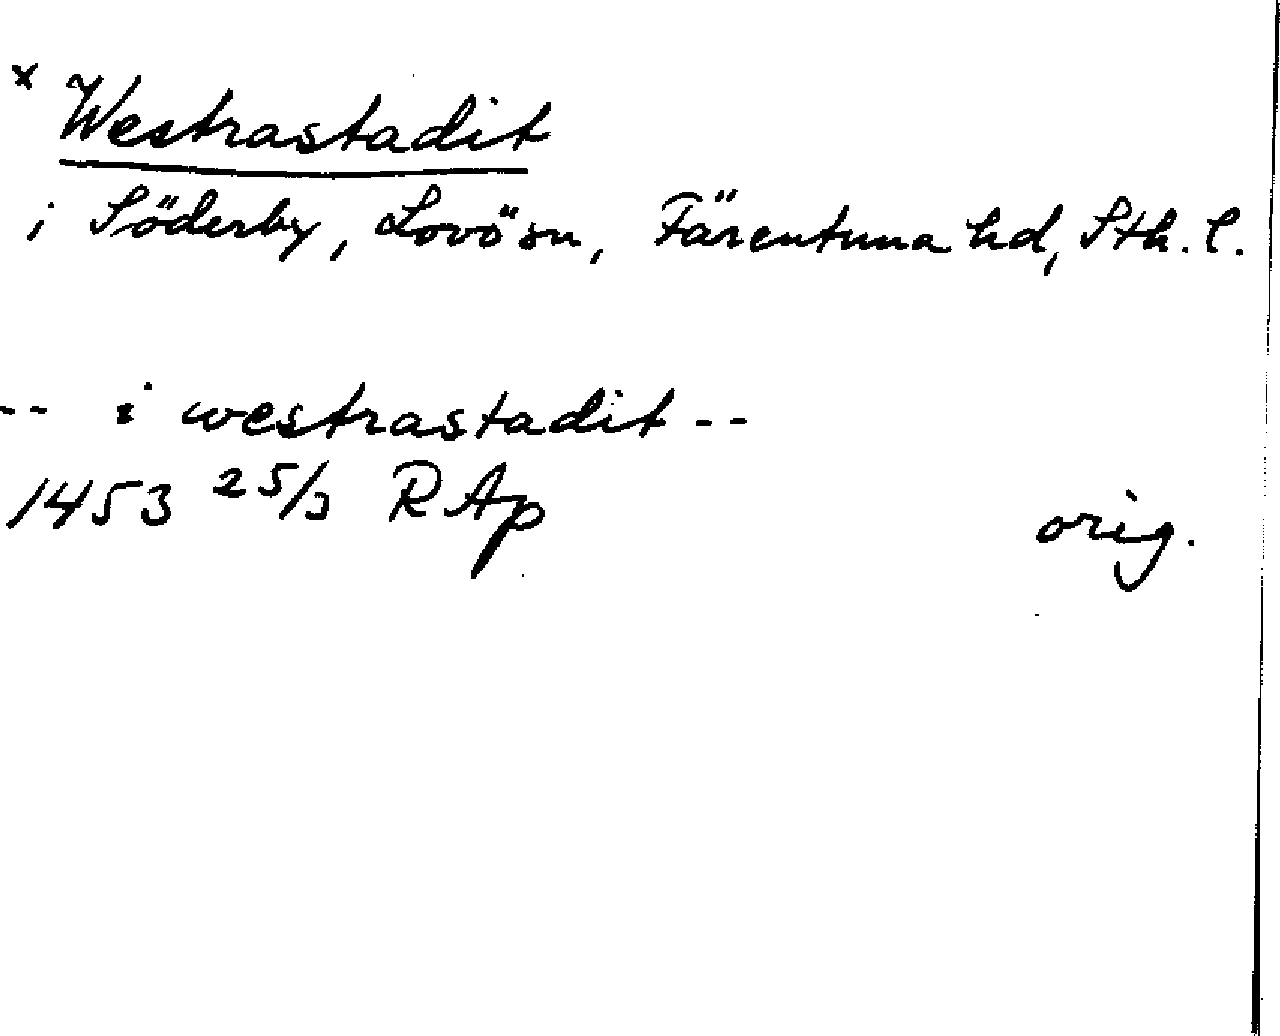 x Westrastadit
i Söderby, Lovö sn, Färentuna hd, Sth. l.
-- i westrastadit --
1453 25/3 RAp
orig.